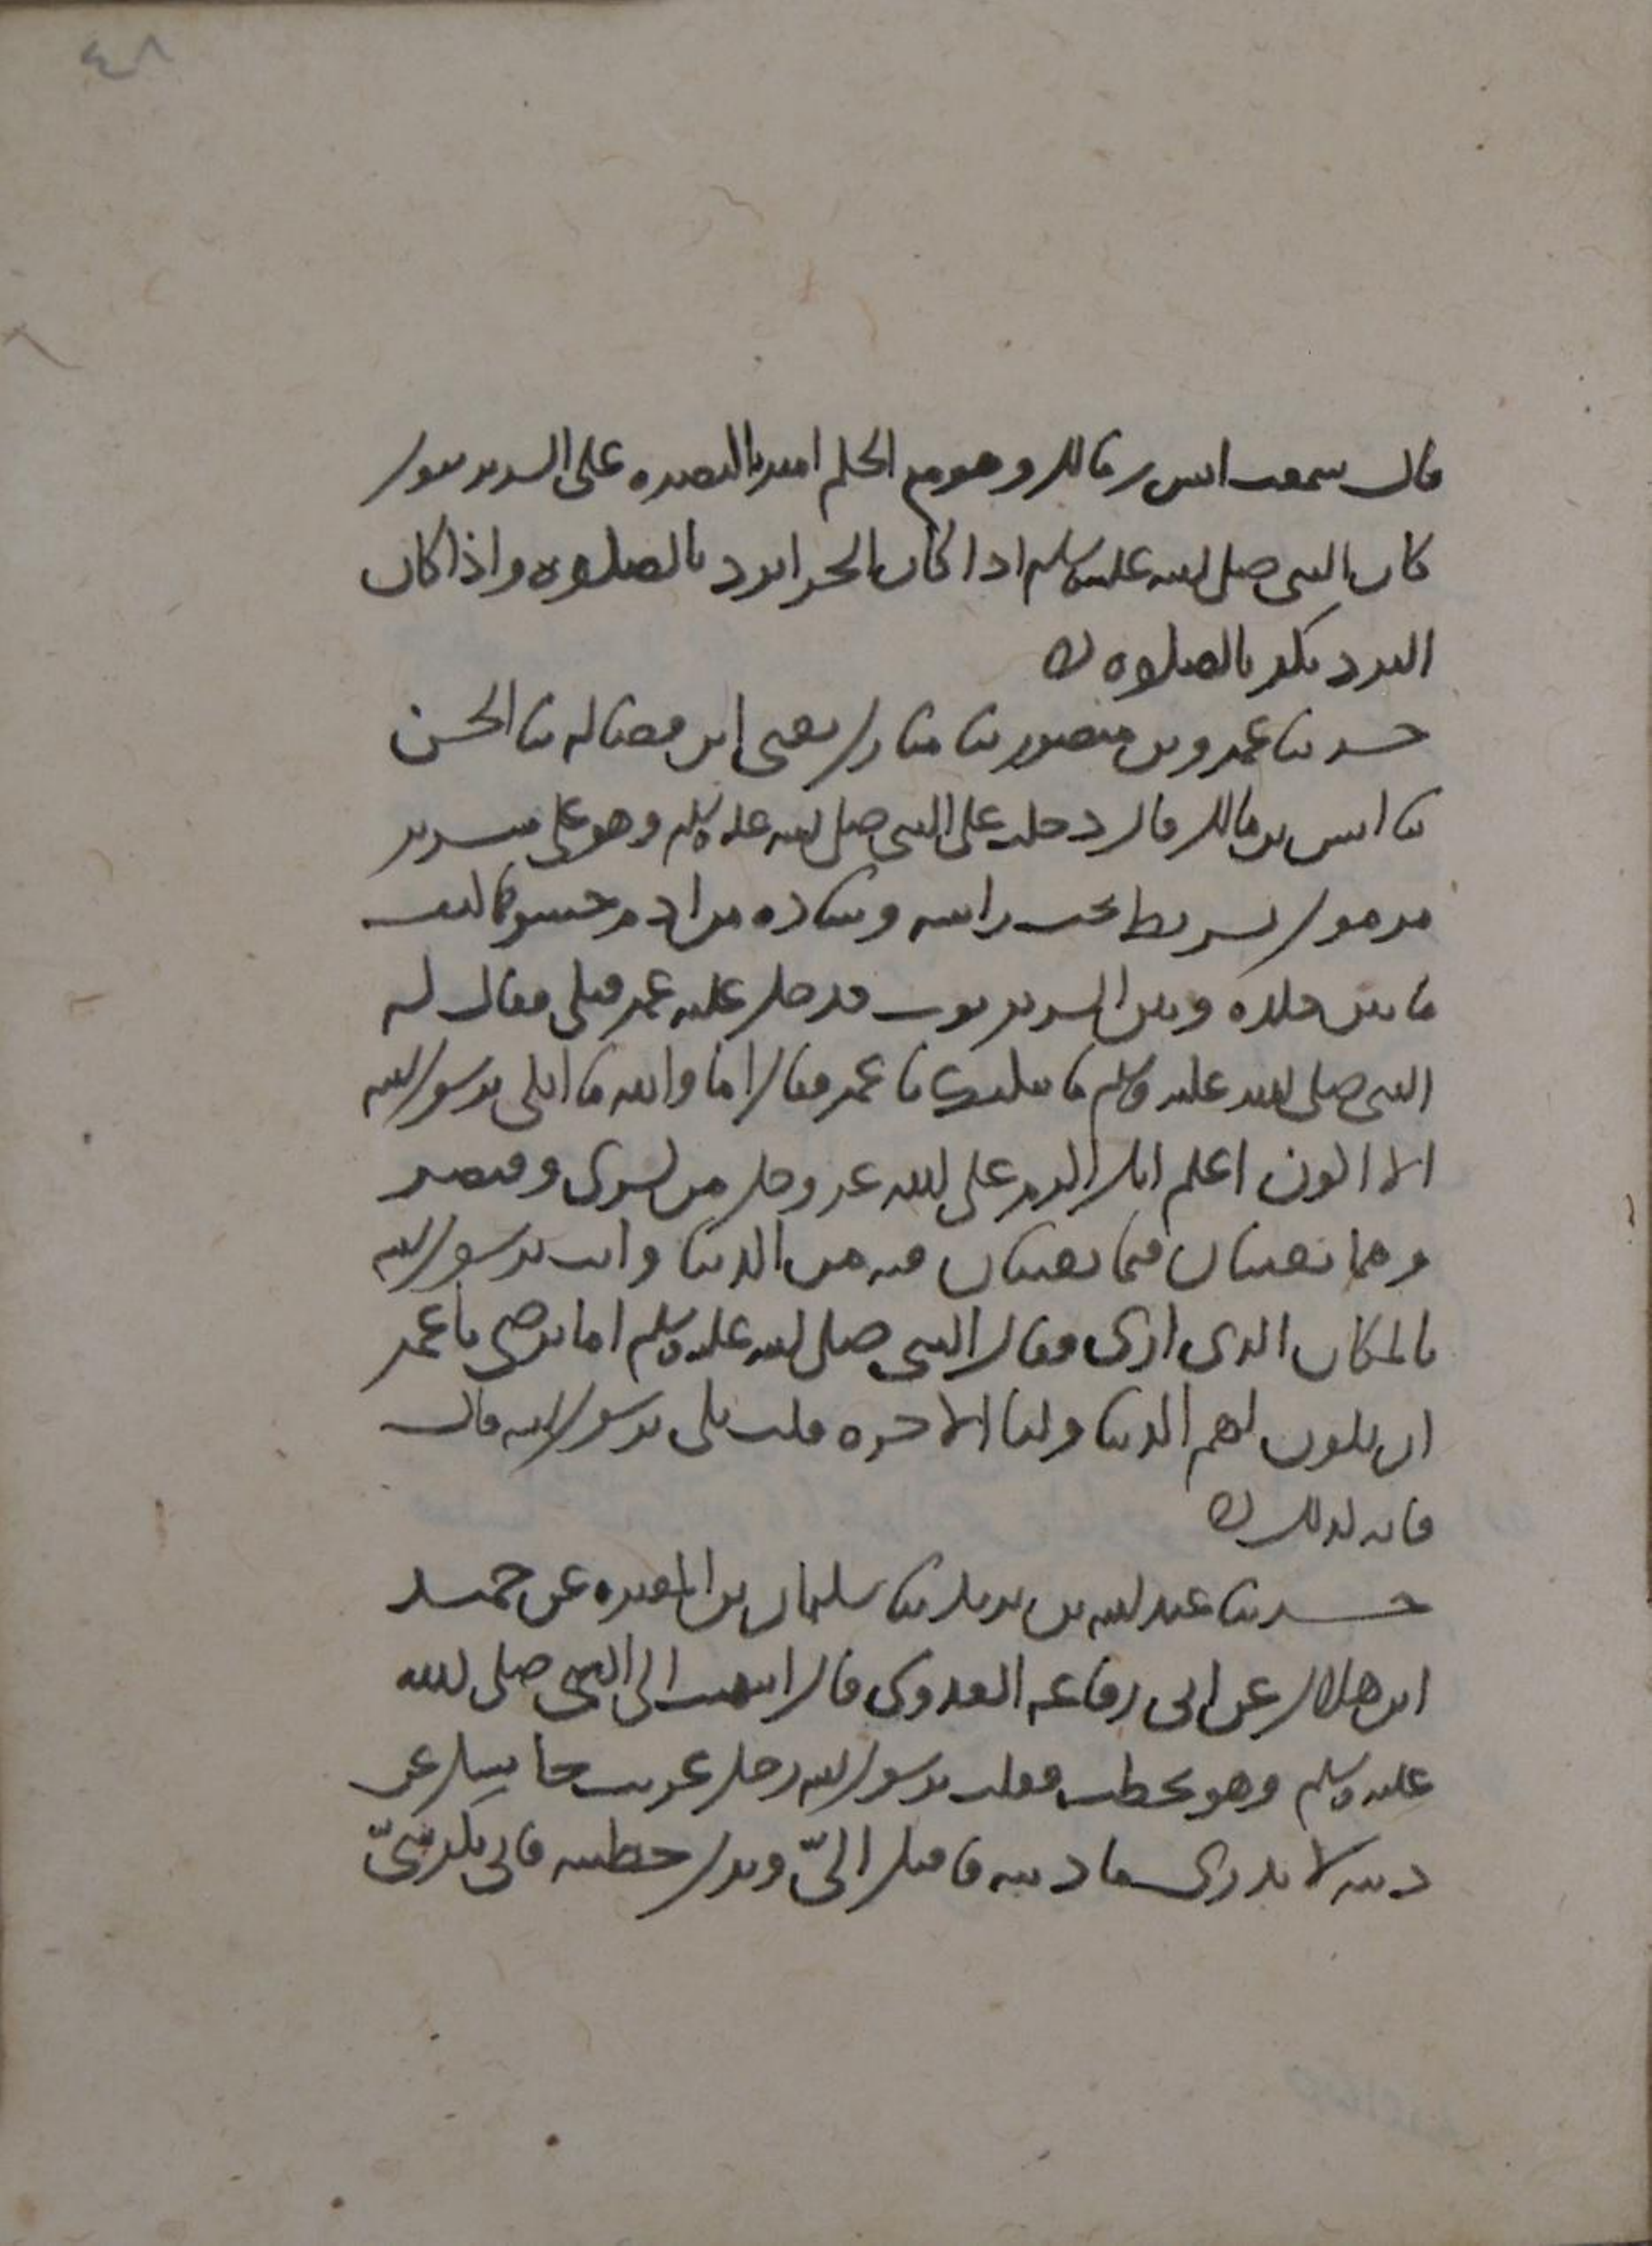 ٤٨
قال سمعت انس بن مالك وهو مع الحكم امير بالبصره على السرير يقول
كان النبى صلى الله عليه وسلم اذا كان الحر ابرد بالصلوه واذا كان
البرد بكر بالصلوه
حدثنا عمرو بن منصور نا مبارك يعنى ابن فضاله نا الحسن
نا انس بن مالك قال دخلت على النبى صلى الله عليه وسلم وهو على سرير
مرمول بشريط تحت راسه وساده من ادم حشوها ليف
ما بين جلده وبين السرير ثوب فدخل عليه عمر فبكى فقال له
النبى صلى الله عليه وسلم ما يبكيك يا عمر فقال اما والله ما ابكى يرسول الله
الا اكون اعلم انك اكرم على الله عز وجل من كسرى وقيصر
وهما يعيشان فيما يعيشان فيه من الدنيا وانت يرسول الله
بالمكان الذى ارى فقال النبى صلى الله عليه وسلم اما ترضى يا عمر
ان يكون لهم الدنيا ولنا الاخره قلت بلى يرسول الله قال
فانه كذلك
حدثنا عبد الله بن يزيد نا سليمان بن المغيره عن حميد
ابن هلال عن ابى رفاعه العدوى قال انتهيت الى النبى صلى الله
عليه وسلم وهو يخطب فقلت يرسول الله رجل غريب جا يسل عن
دينه لا يدرى ما دينه فاقبل الىّ وترك خطبته فاتى بكرسىّ